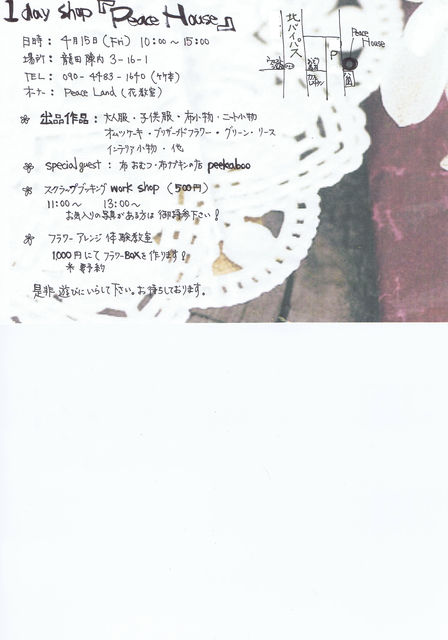 1 day shop 『Peace House』
日時: 4月15日(Fri) 10:00～15:00
場所: 龍田陣内 3-16-1
TEL: 090-4483-1640
オーナー: Peace Land (花教室)
出品作品: 大人服・子供服・布小物・ニット小物
オムツケーキ・ブリザードフラワー・グリーン・リース
インテリア小物・他
special guest: 布おむつ・布ナプキンの店 peekaboo
スクラップブッキング work shop (500円)
11:00～ 13:00～
お気入りの写真がある方は御持参下さい!
フラワーアレンジ体験教室
1,000円にてフラワーBOXを作ります!
*要予約
是非、遊びにいらして下さい。お待ちしております。
北バイパス
Peace
House
P